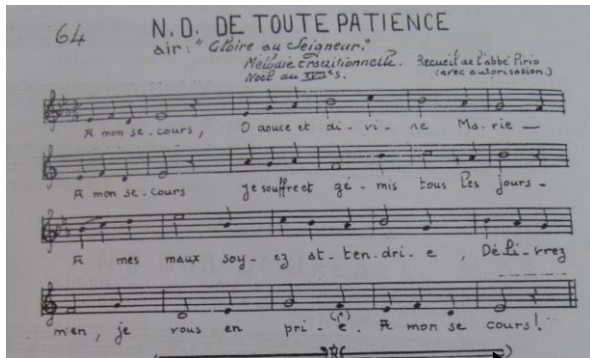 64
N.D. DE TOUTE PATIENCE
air: "Gloire au Seigneur."
Mélodie traditionnelle.
Noël du XVIIe s.
Recueil de l'abbé Pirio
(avec autorisation.)
A mon se.cours, O douce et di.vi.ne Ma.rie_
A mon se.cours je souffre et gé-mis tous les jours-
A mes maux soy-ez at.ten.dri.e, Déli-vrez
m'en, je vous en pri-e. A mon se cours!